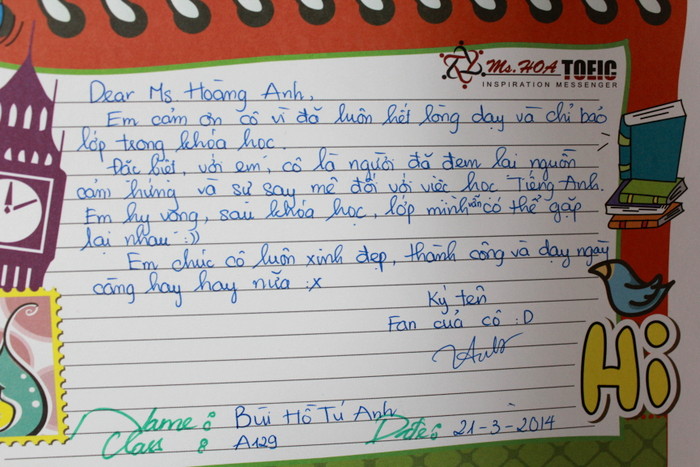 Ms. HOA TOEIC
INSPIRATION MESSENGER
Dear Ms Hoàng Anh,
Em cảm ơn cô vì đã luôn hết lòng dạy và chỉ bảo
lớp trong khóa học.
Đặc biệt, với em, cô là người đã đem lại nguồn
cảm hứng và sự say mê đối với việc học Tiếng Anh.
Em hy vọng, sau khóa học, lớp mình vẫn có thể gặp
lại nhau :))
Em chúc cô luôn xinh đẹp, thành công và dạy ngày
càng hay hay nữa :x
Ký tên
Fan của cô :D
Hi
Name: Bùi Hồ Tú Anh
Date: 21-3-2014
Class: A129